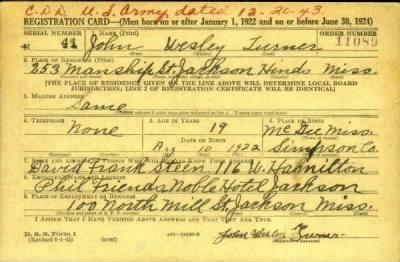 C.D.D. U.S. Army, dated 12-20-43
REGISTRATION CARD—(Men born on or after January 1, 1922 and on or before June 30, 1924)
SERIAL NUMBER 1. NAME (Print) ORDER NUMBER
N- 41 John Wesley Turner 11089
2. PLACE OF RESIDENCE (Print)
253 Manship St. Jackson Hinds Miss.
[THE PLACE OF RESIDENCE GIVEN ON THE LINE ABOVE WILL DETERMINE LOCAL BOARD
JURISDICTION; LINE 2 OF REGISTRATION CERTIFICATE WILL BE IDENTICAL]
3. MAILING ADDRESS
Same
4. TELEPHONE 5. AGE IN YEARS 6. PLACE OF BIRTH
None 19 McGee Miss.
DATE OF BIRTH Simpson Co.
10 1922
7. NAME AND ADDRESS OF PERSON WHO WILL ALWAYS KNOW YOUR ADDRESS
David Frank Steen, 116 W. Hamilton
8. EMPLOYER'S NAME AND ADDRESS
Phil Friends Noble Hotel Jackson
9. PLACE OF EMPLOYMENT OR BUSINESS
100 North Mill St. Jackson Miss.
I AFFIRM THAT I HAVE VERIFIED ABOVE ANSWERS AND THAT THEY ARE TRUE.
D. S. S. Form 1
(Revised 6-1-42) (over)
John Wesley Turner